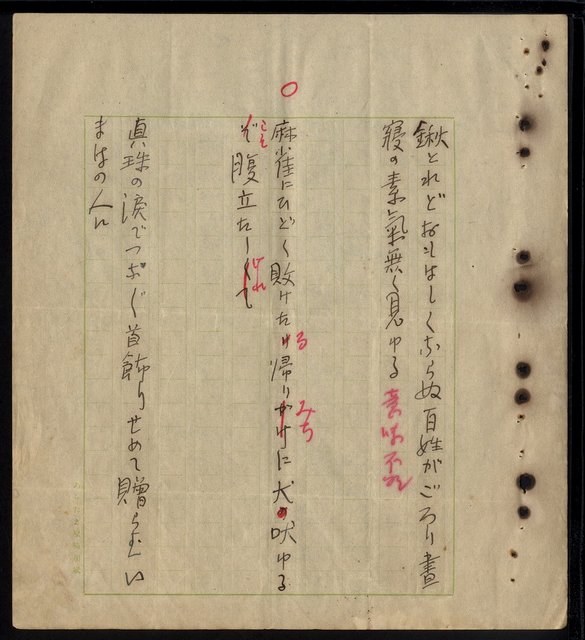 鍬とれどおもはしくならぬ百姓がごろり晝
寝の素氣無く見ゆる
意味不明
○
麻雀にひどく敗けたり帰りがけに犬の吠ゆる
る
みち
ぞ腹立たしくて
こそ
けれ
真珠の涙でつなぐ首飾りせめて贈らむい
まはの人に